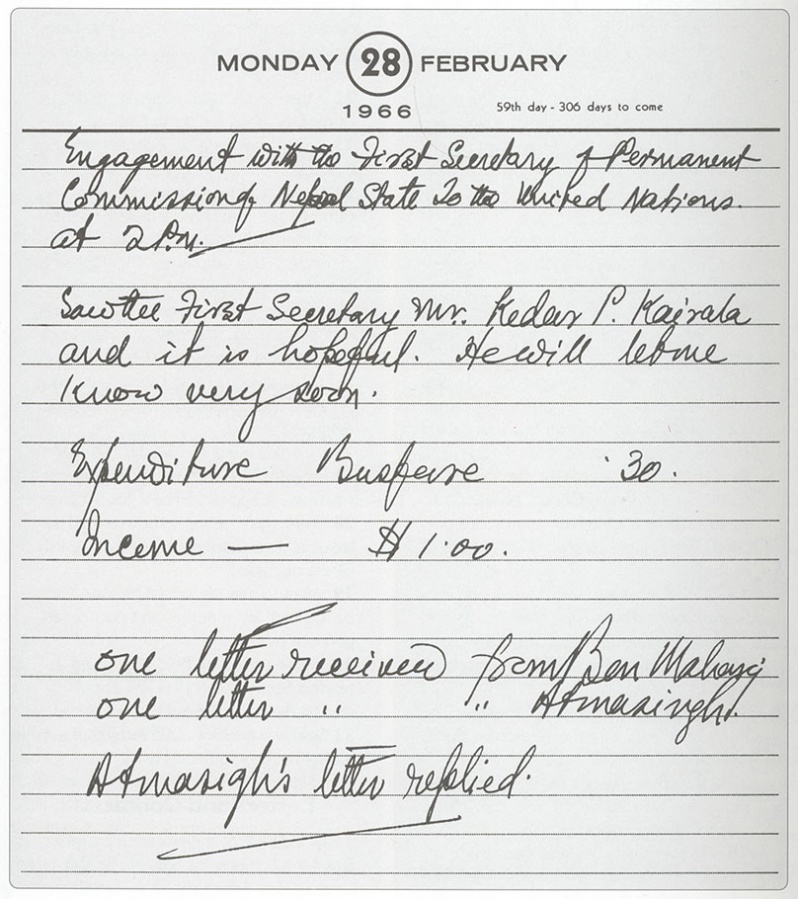 MONDAY 28 FEBRUARY
1966 59th day - 306 days to come
Engagement with the First Secretary of Permanent
Commission of Nepal State to the United Nations.
at 2 P.M.
Saw the First Secretary Mr. Kedar P. Kairala
and it is hopeful. He will let me
know very soon.
Expenditure Busfare .30.
Income — $ 1.00.
one letter received from Bon Maharaj
one letter " " Atmasingh.
Atmasigh's letter replied.